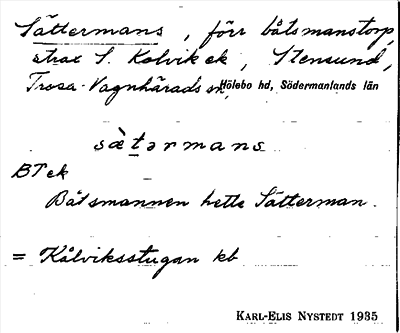 Sättermans, förr båtsmanstorp,
strax S. Kolvik ek, Stensund,
Trosa-Vagnhärads sn, Hölebo hd, Södermanlands län
sæ̀tərmans
BT ek
Båtsmannen hette Sätterman.
= Kålviksstugan kb
KARL-ELIS NYSTEDT 1935